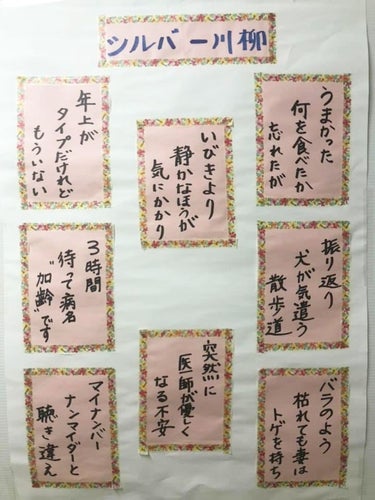 シルバー川柳
うまかった
何を食べたか
忘れたが
振り返り
犬が気遣う
散歩道
バラのよう
枯れても妻は
トゲを持ち
いびきより
静かなほうが
気にかかり
突然に
医師が優しく
なる不安
年上が
タイプだけれど
もういない
3時間
待って病名
“加齢”です
マイナンバー
ナンマイダーと
聴き違え